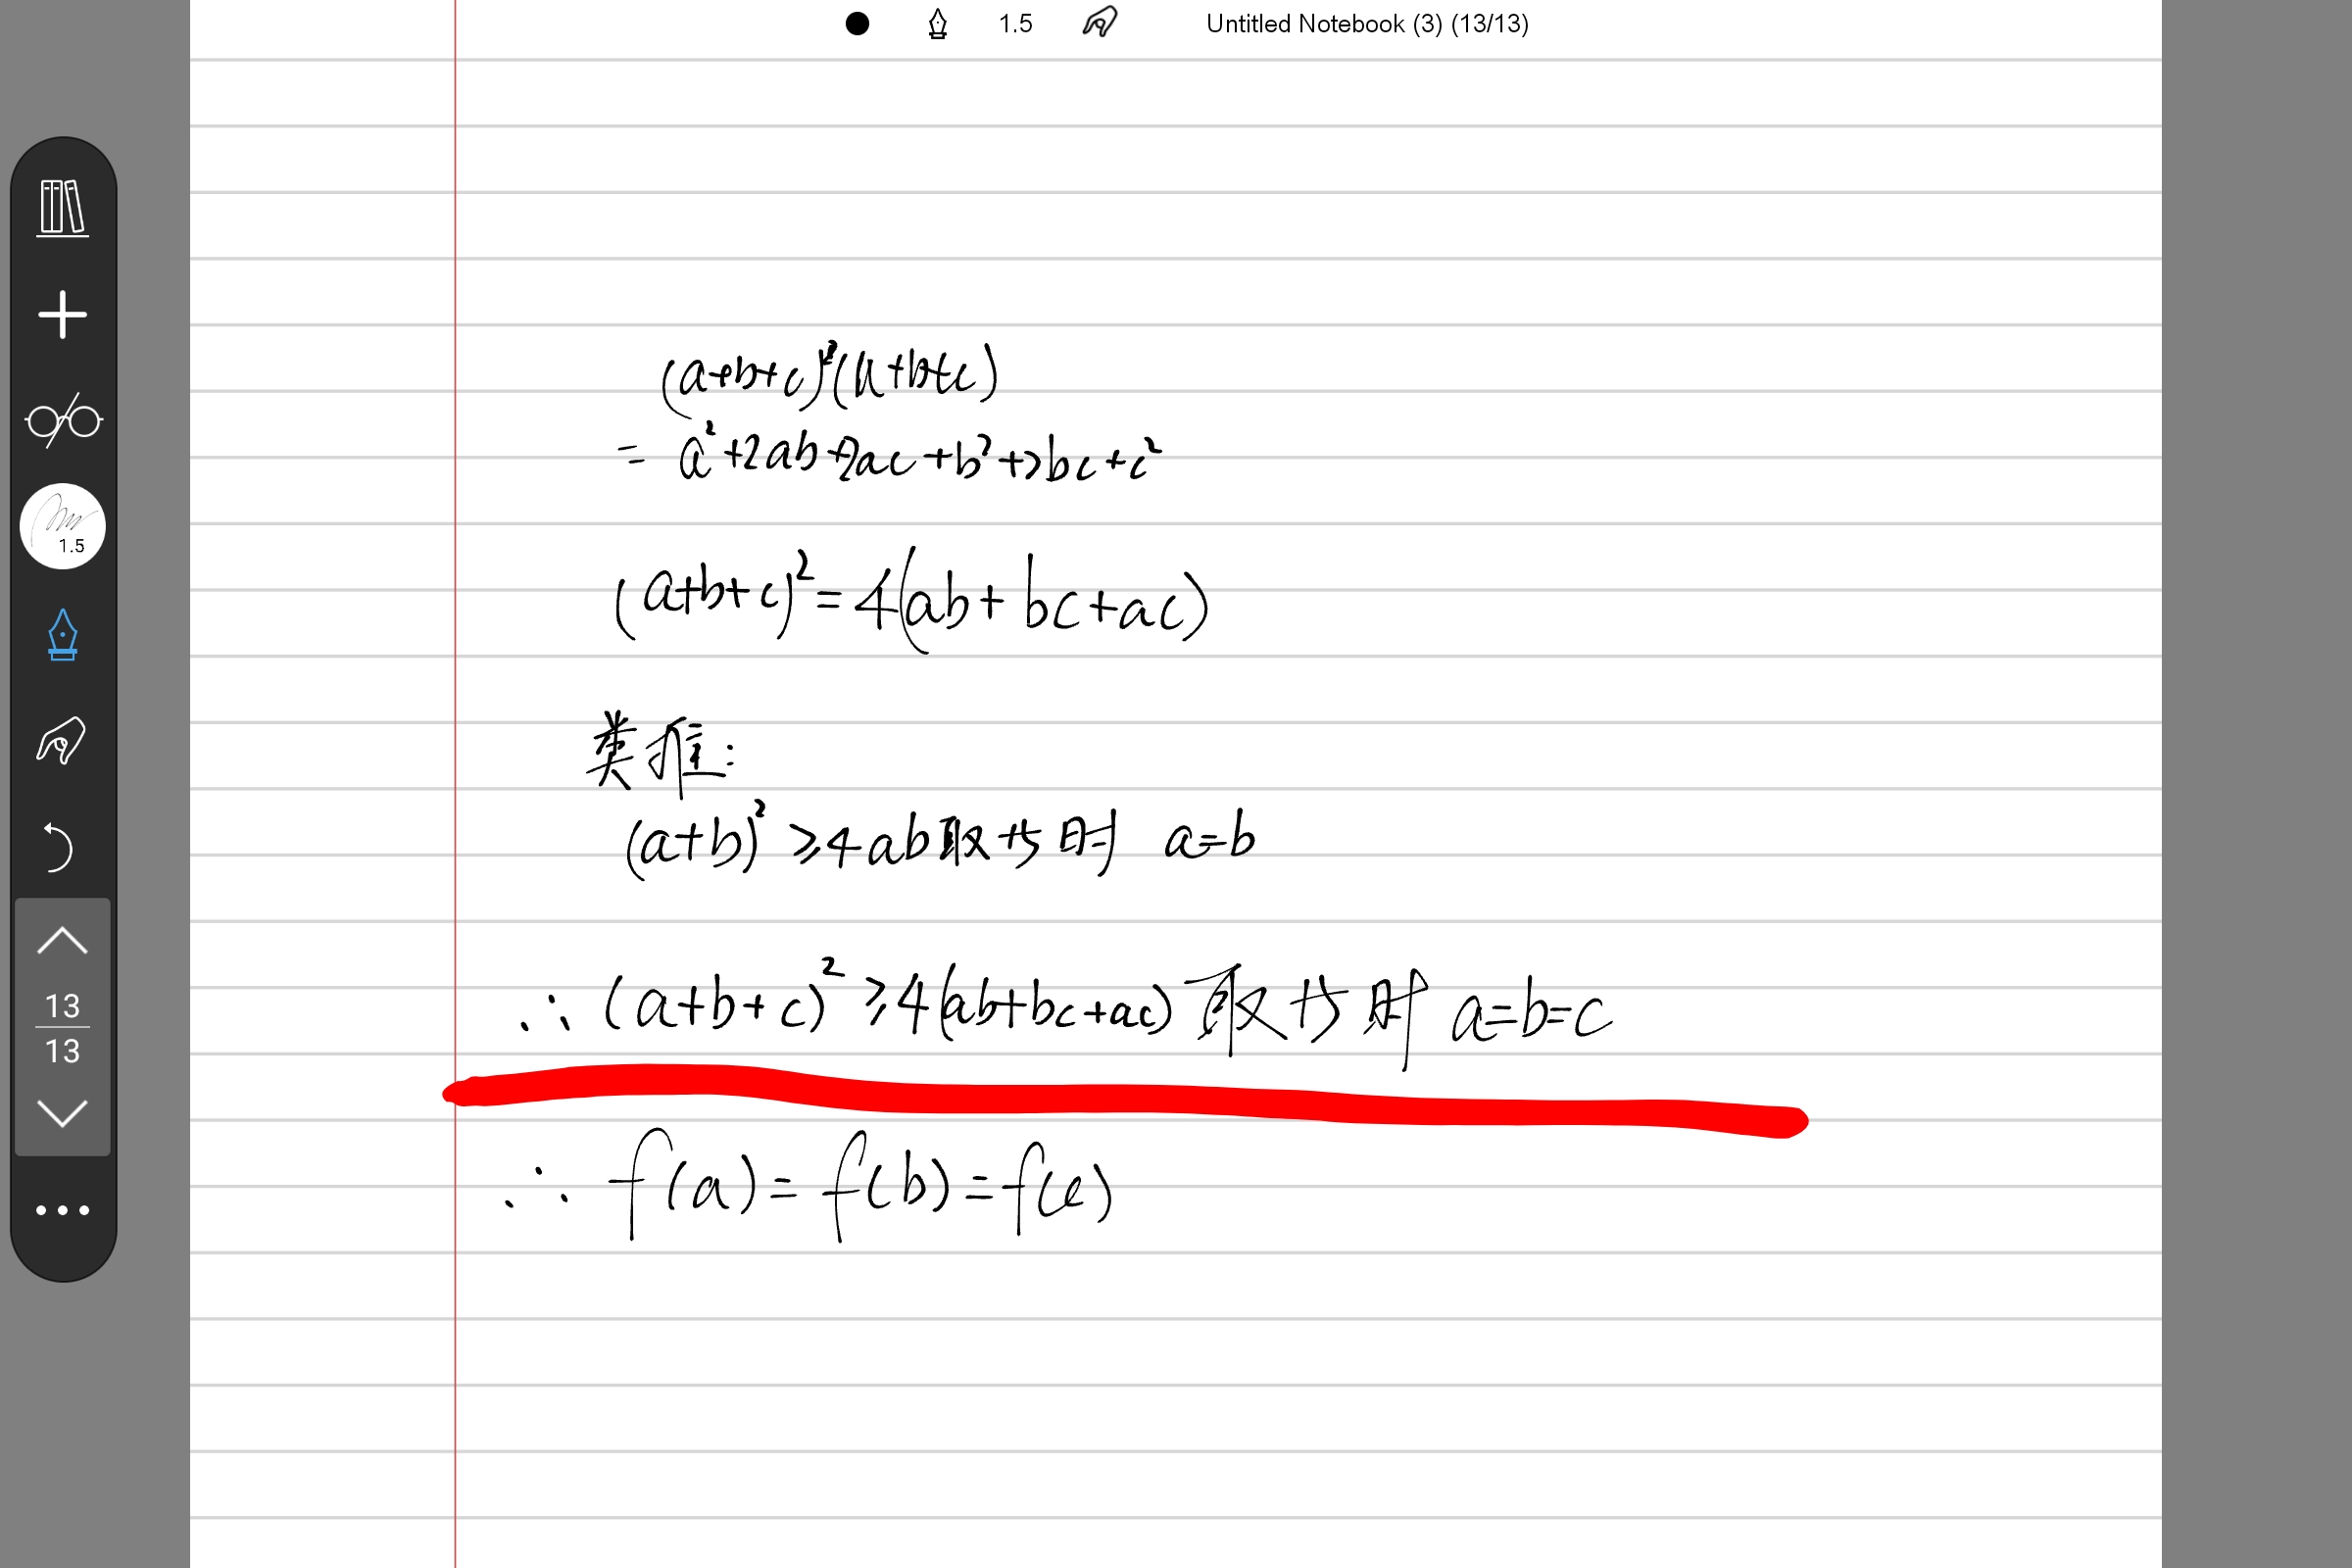 1.5 Untitled Notebook (3) (13/13)
(a+b+c)²(a+b+c)
= a²+2ab+2ac+b²+2bc+c²
1.5
(a+b+c)²=4(ab+bc+ac)
类推:
(a+b)²≥4ab取等时 a=b
∴(a+b+c)²≥4(ab+bc+ac)取等时 a=b=c
13
13
∴ f(a)=f(b)=f(c)